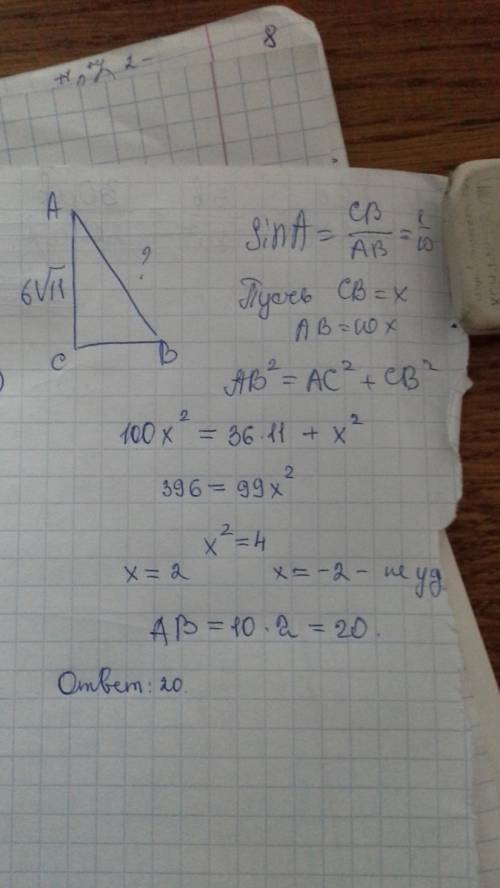 8
A
6√11
?
C
B
sinA = CB/AB = 1/10
Пусть CB = x
AB = 10x
AB² = AC² + CB²
100x² = 36·11 + x²
396 = 99x²
x² = 4
x = 2 x = -2 - не уд.
AB = 10·2 = 20.
Ответ: 20.